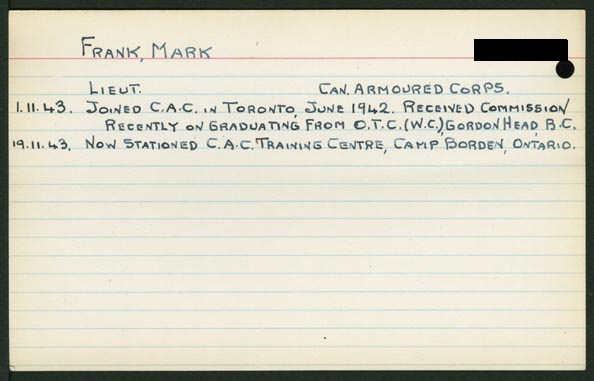 FRANK, MARK
LIEUT. CAN. ARMOURED CORPS.
1.11.43. JOINED C.A.C. IN TORONTO, JUNE 1942. RECEIVED COMMISSION
RECENTLY ON GRADUATING FROM O.T.C. (W.C.), GORDON HEAD, B.C.
19.11.43. NOW STATIONED C.A.C. TRAINING CENTRE, CAMP BORDEN, ONTARIO.